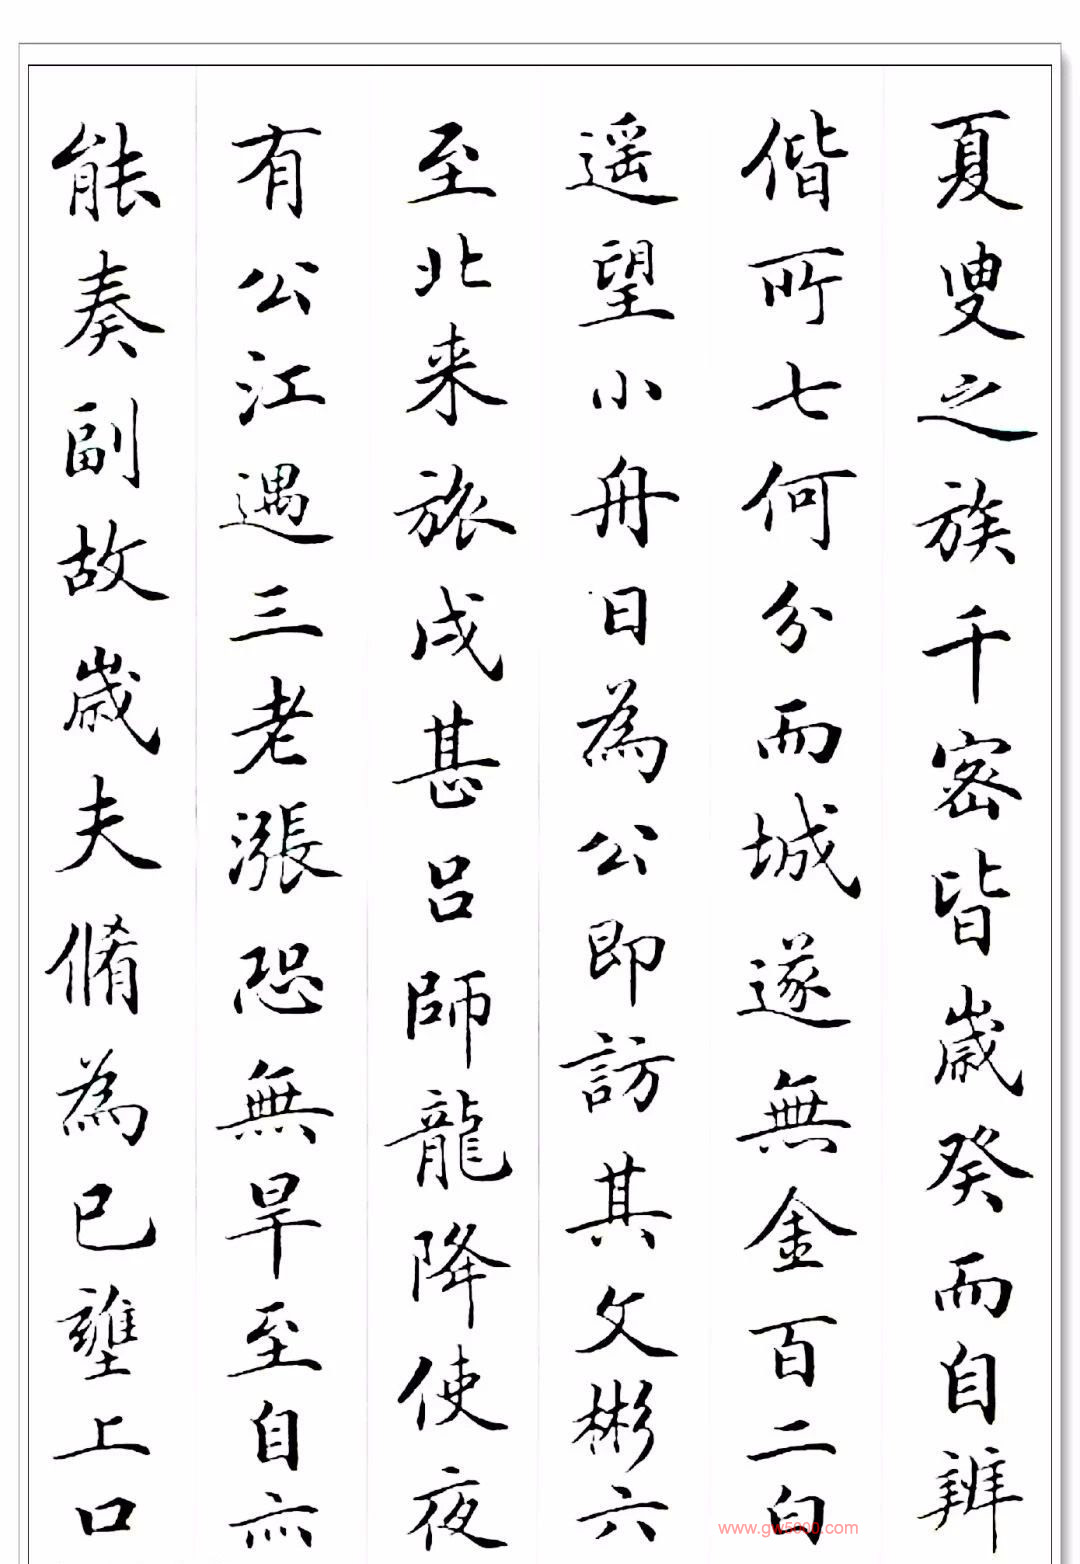 夏叟之族千密皆歲癸而自辨
偕所七何分而城遂無金百二白
遥望小舟日為公即訪其文彬六
至北来旅戌甚吕師龍降使夜
有公江遇三老漲恐無旱至自亦
能奏副故歲夫脩為已壅上口
www.gw5000.com